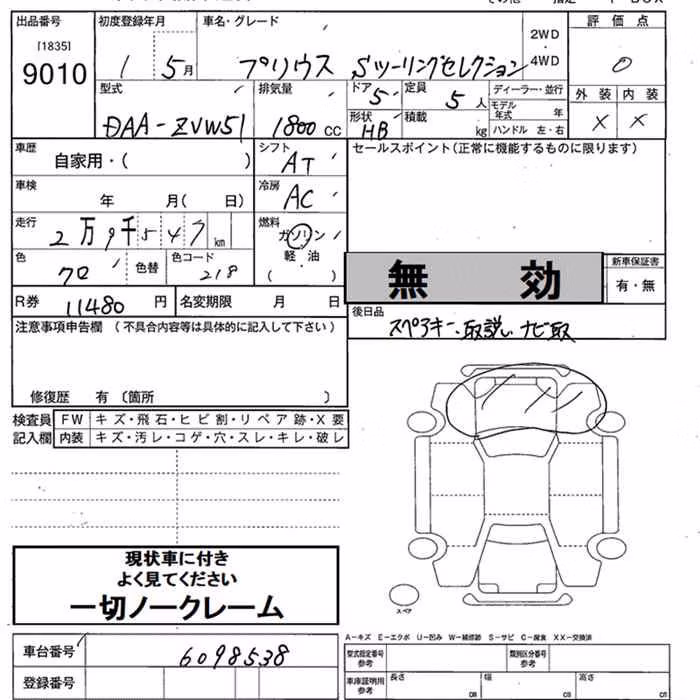 出品番号 初度登録年月 車名・グレード 2WD 評価点
[1835]
9010 1 5月 プリウス Sツーリングセレクション 4WD 0
型式 排気量 ドア 5 定員 5人 ディーラー・並行 外装 内装
DAA-ZVW51 1800cc 形状 HB 積載 kg モデル年式 年 X X
ハンドル 左・右
車歴 自家用・( ) シフト AT セールスポイント(正常に機能するものに限ります)
車検 年 月( 日) 冷房 AC
走行 2万9千547km 燃料 ガソリン
色 クロ 色替 色コード 218 軽油 ( ) 無効 新車保証書 有・無
R券 11480円 名変期限 月 日
後日品
注意事項申告欄 (不具合内容等は具体的に記入して下さい) スペアキー、取説、ナビ取
修復歴 有 〔箇所 〕
検査員 FW キズ・飛石・ヒビ割・リペア跡・X要
記入欄 内装 キズ・汚レ・コゲ・穴・スレ・キレ・破レ
現状車に付き
よく見てください
一切ノークレーム
スペア
A-キズ E-エクボ U-凹み W-補修跡 S-サビ C-腐食 XX-交換済
車台番号 6098538 型式指定番号 参考 類別区分番号 参考
登録番号 車庫証明用 参考 長さ cm 幅 cm 高さ cm